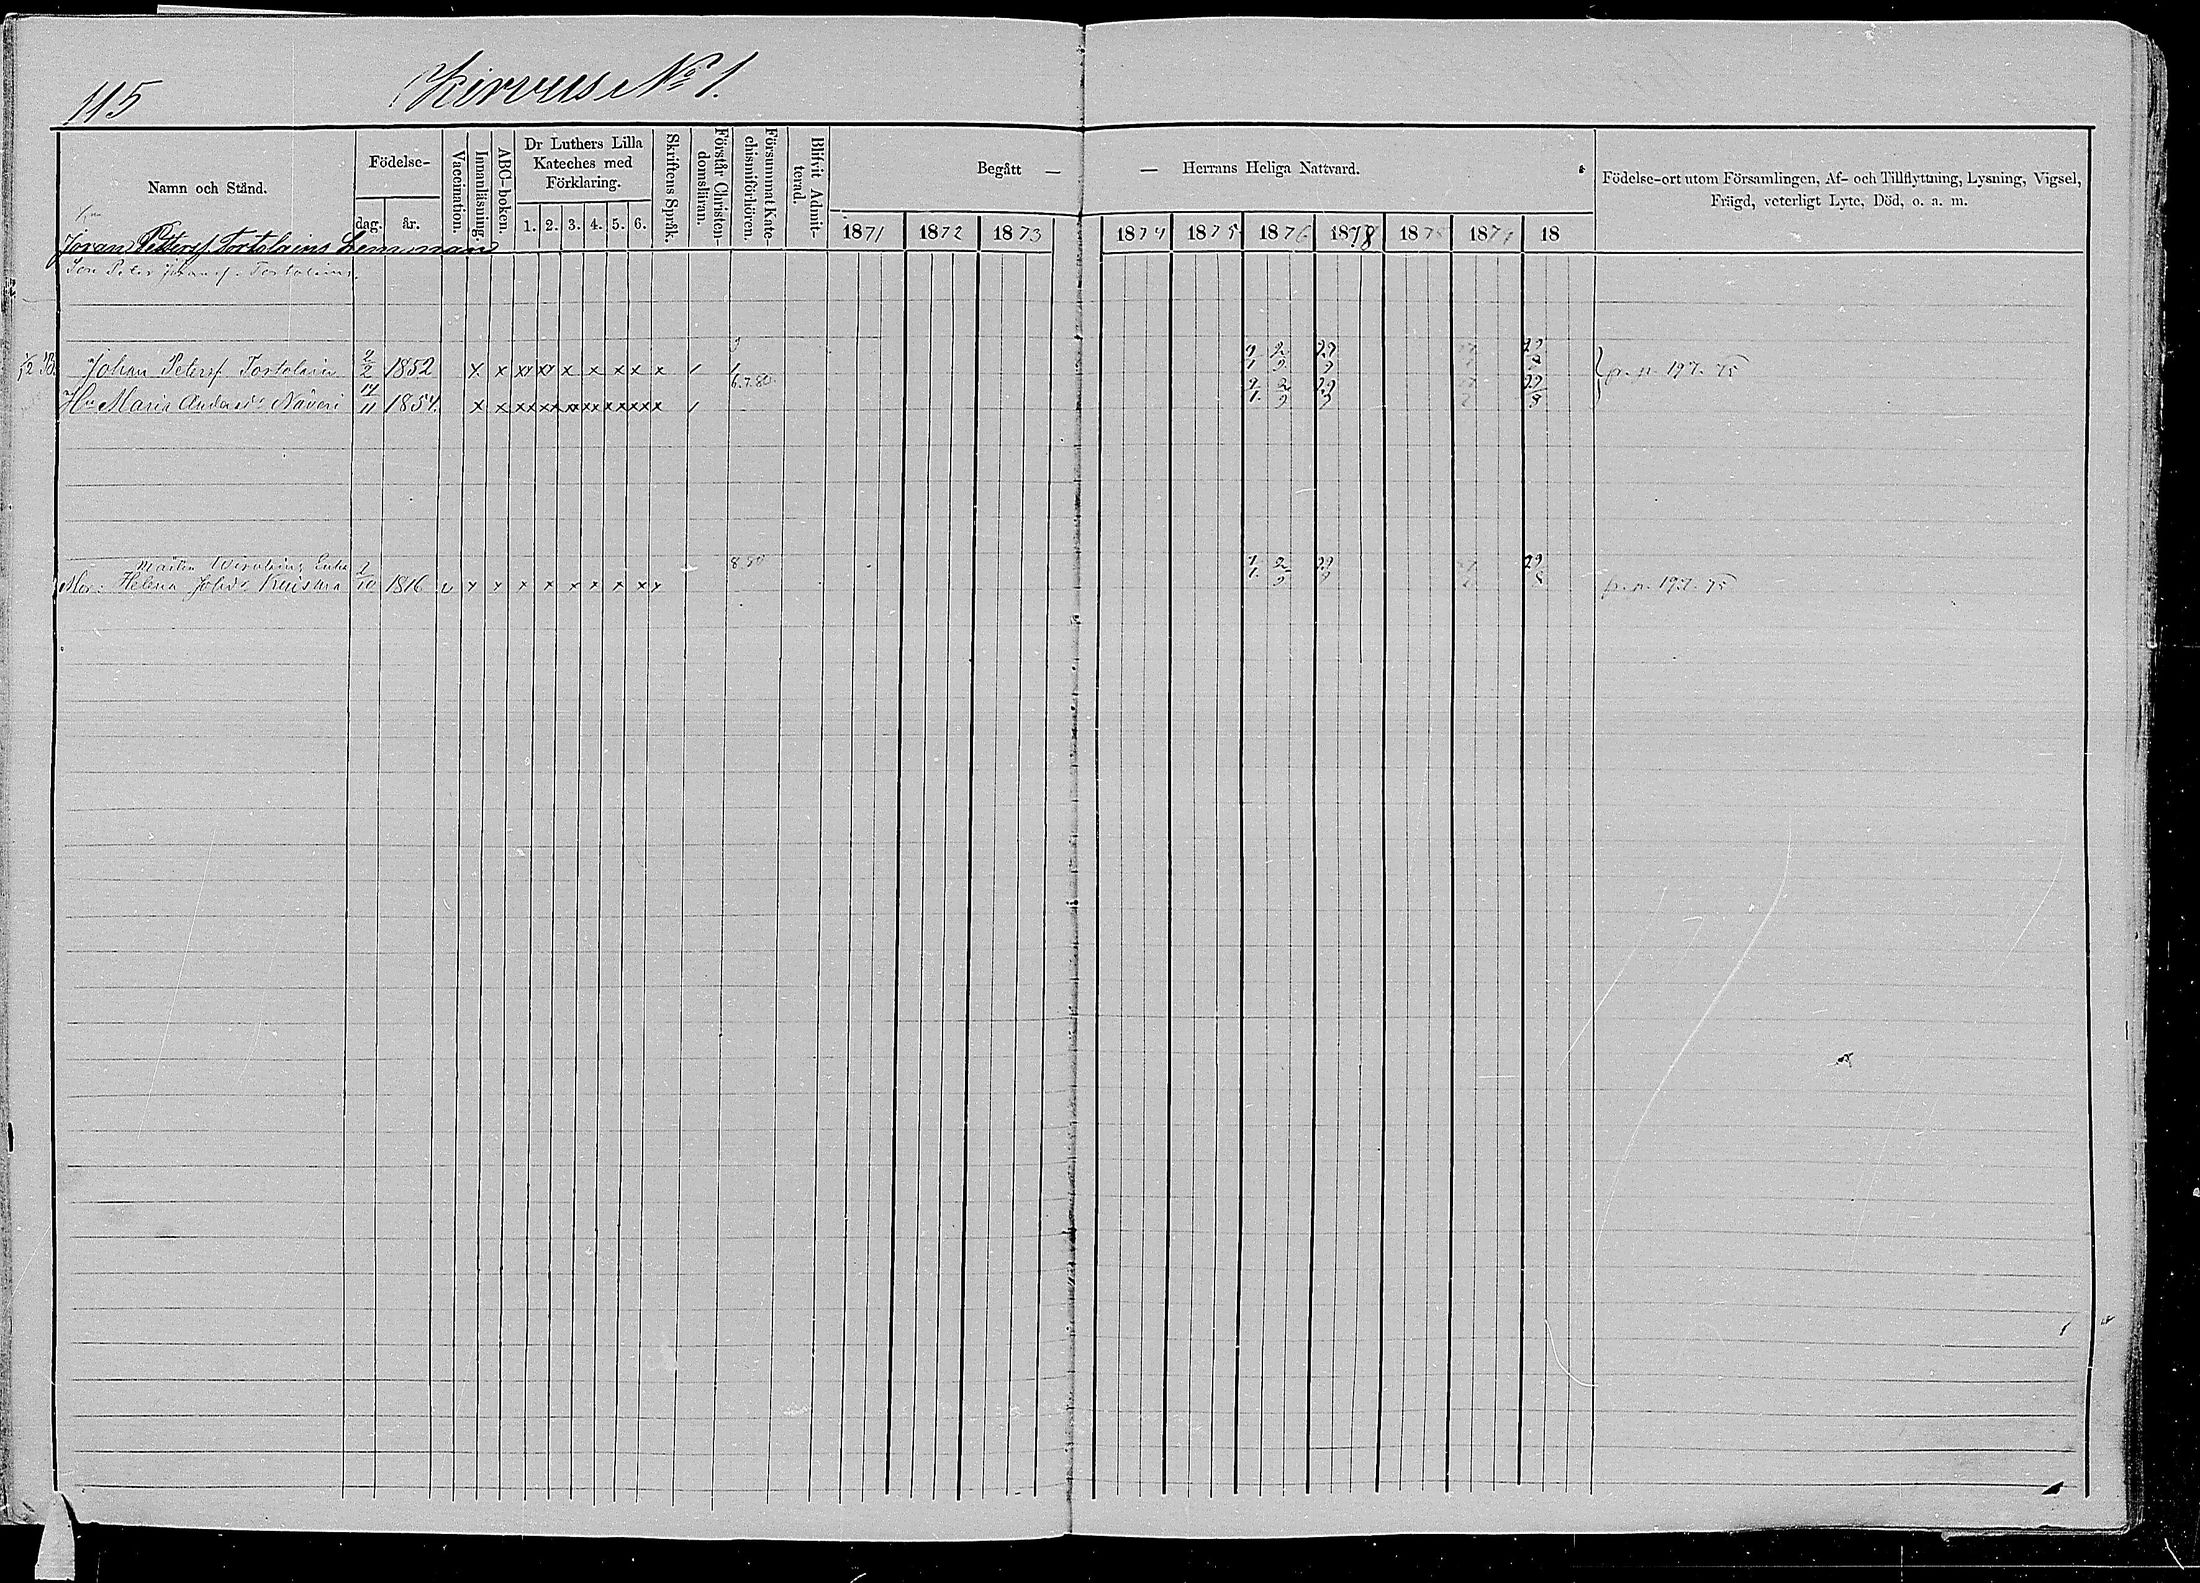 115 Kirvus No 1.
Namn och Stånd.
Födelse-
dag. år.
Vaccination.
Innanläsning
ABC-boken.
Dr Luthers Lilla
Kateches med
Förklaring.
1. 2. 3. 4. 5. 6.
Skriftens Språk.
Förstår Christen-
domsläran.
Försummat Kate-
chismiförhören.
Blifvit Admit-
terad.
Begått — — Herrans Heliga Nattvard.
1871 1872 1873 1874 1875 1876 1878 1878 1879 18
Födelse-ort utom Församlingen, Af- och Tillflyttning, Lysning, Vigsel,
Frägd, veterligt Lyte, Död, o. a. m.
Jöran Pettersf Tortolains hemman
Son Peter Johansf. Tortolain
1/2 B. Johan Petersf Tortolain 2/2 1852 x x xx xx x x xx x / 1 29/8 p. n. 197. 75
6.7.80.
Hu Maria Andersdr Näveri 11 1854. x x xx xx xx xx xx xx x / 29/8
Martin Enka
Mor: Helena Johsdr Kuisma 2/10 1816 v x x x x x x x x x 8.80 29/8 p. n. 197. 75